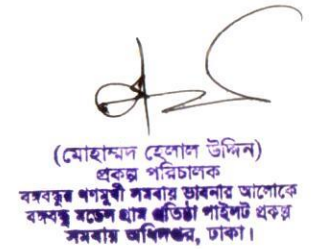 (মোহাম্মদ হেলাল উদ্দিন)
প্রকল্প পরিচালক
বঙ্গবন্ধুর গণমুখী সমবায় ভাবনার আলোকে
বঙ্গবন্ধু মডেল গ্রাম প্রতিষ্ঠা পাইলট প্রকল্প
সমবায় অধিদপ্তর, ঢাকা।